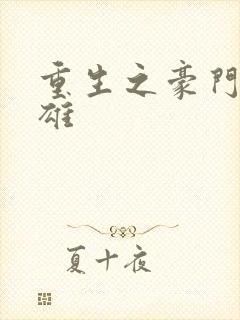 重生之豪門
雄
夏十夜